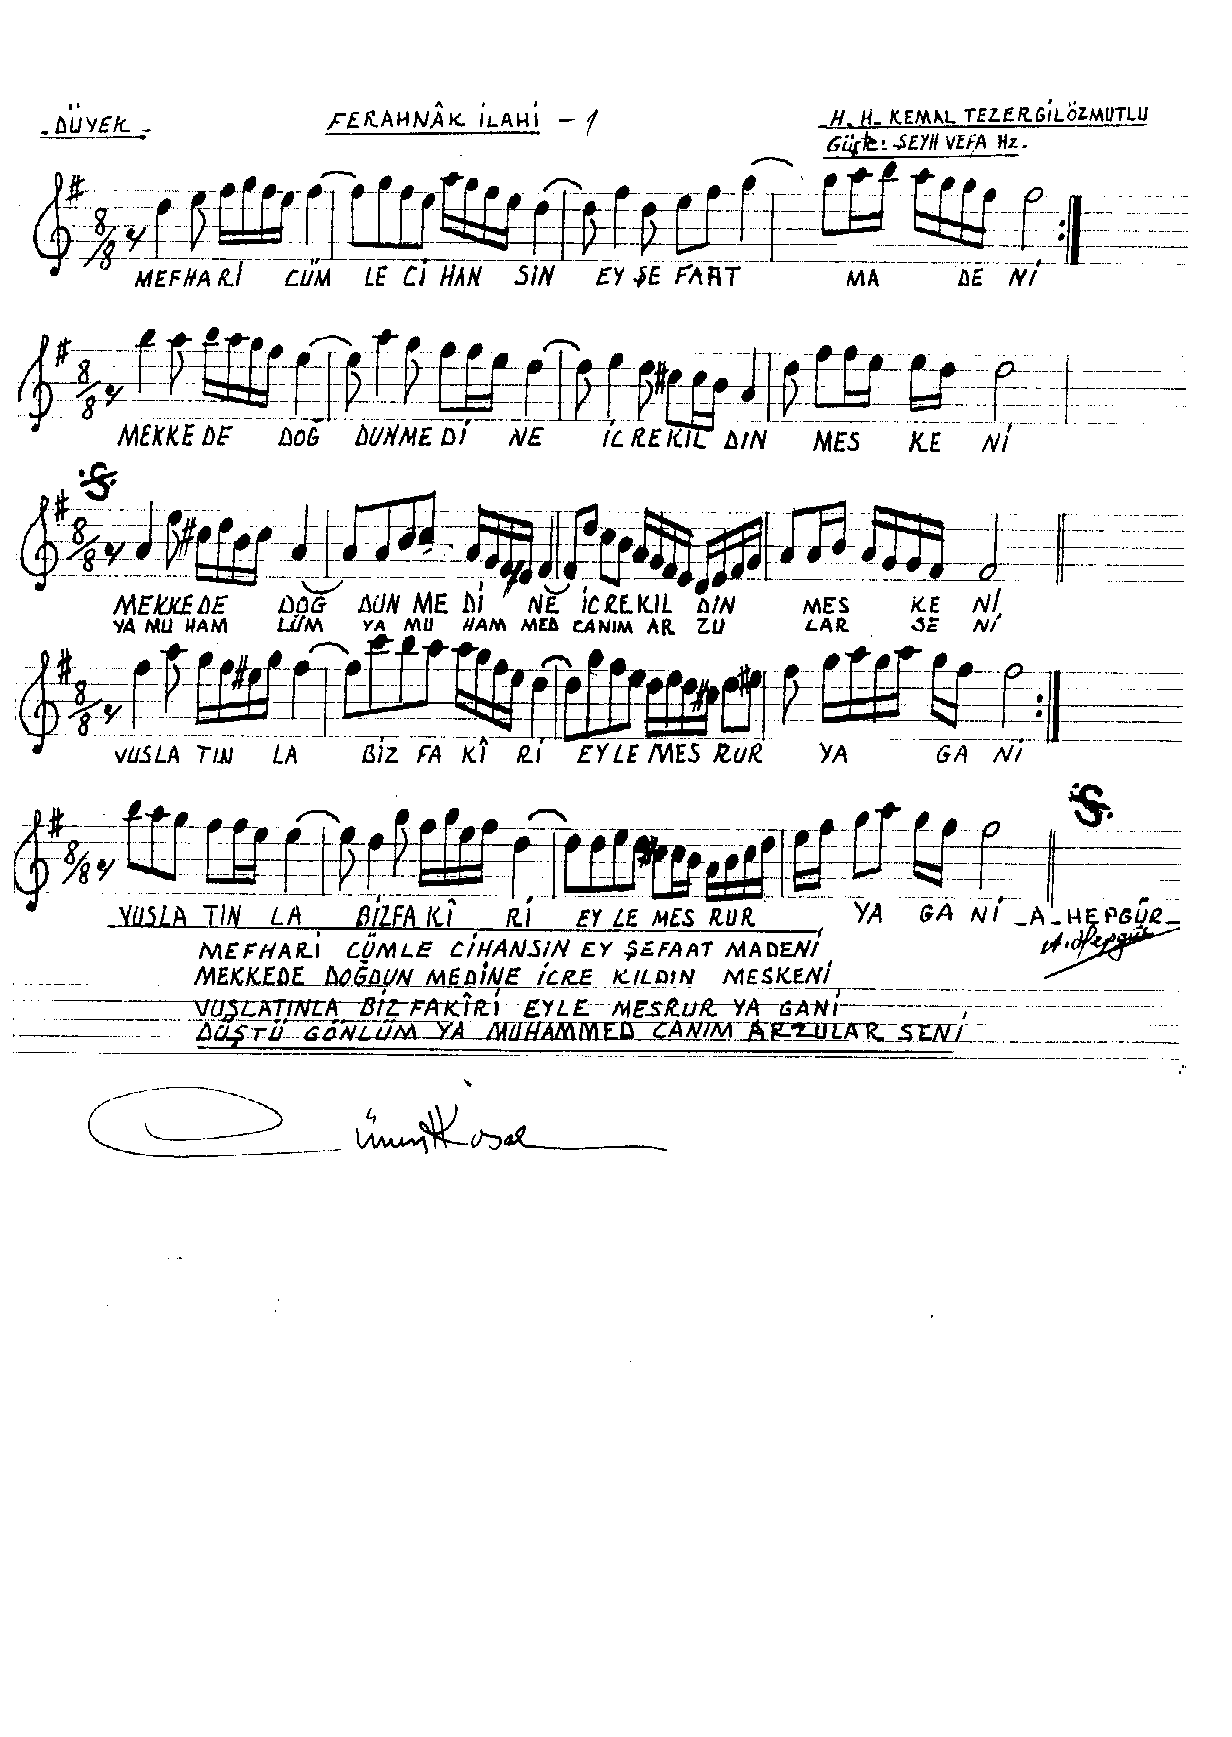 -DÜYEK- FERAHNÂK İLAHİ - 1 H. H. KEMAL TEZERGİLÖZMUTLU
Güfte: ŞEYH VEFA Hz.
8/8 MEFHARİ CÜM LE Cİ HAN SİN EY ŞE FAAT MA DE Nİ
8/8 MEKKE DE DOĞ DUNME Dİ NE İC RE KIL DIN MES KE Nİ
8/8 MEKKE DE DOĞ DUN ME Dİ NE İC RE KIL DIN MES KE Nİ
YA MU HAM LÜM YA MU HAM MED CANIM AR ZU LAR SE Nİ
8/8 VUSLA TIN LA BİZ FA KÎ Rİ EY LE MES RUR YA GA Nİ
8/8 VUSLA TIN LA BİZ FA KÎ Rİ EY LE MES RUR YA GA Nİ -A-HEPGÜR-
A. Hepgür
MEFHARİ CÜMLE CİHANSIN EY ŞEFAAT MADENİ
MEKKEDE DOĞDUN MEDİNE İCRE KILDIN MESKENİ
VUŞLATINLA BİZ FAKÎRİ EYLE MESRUR YA GANİ
DÜŞTÜ GÖNLÜM YA MUHAMMED CANIM ARZULAR SENİ